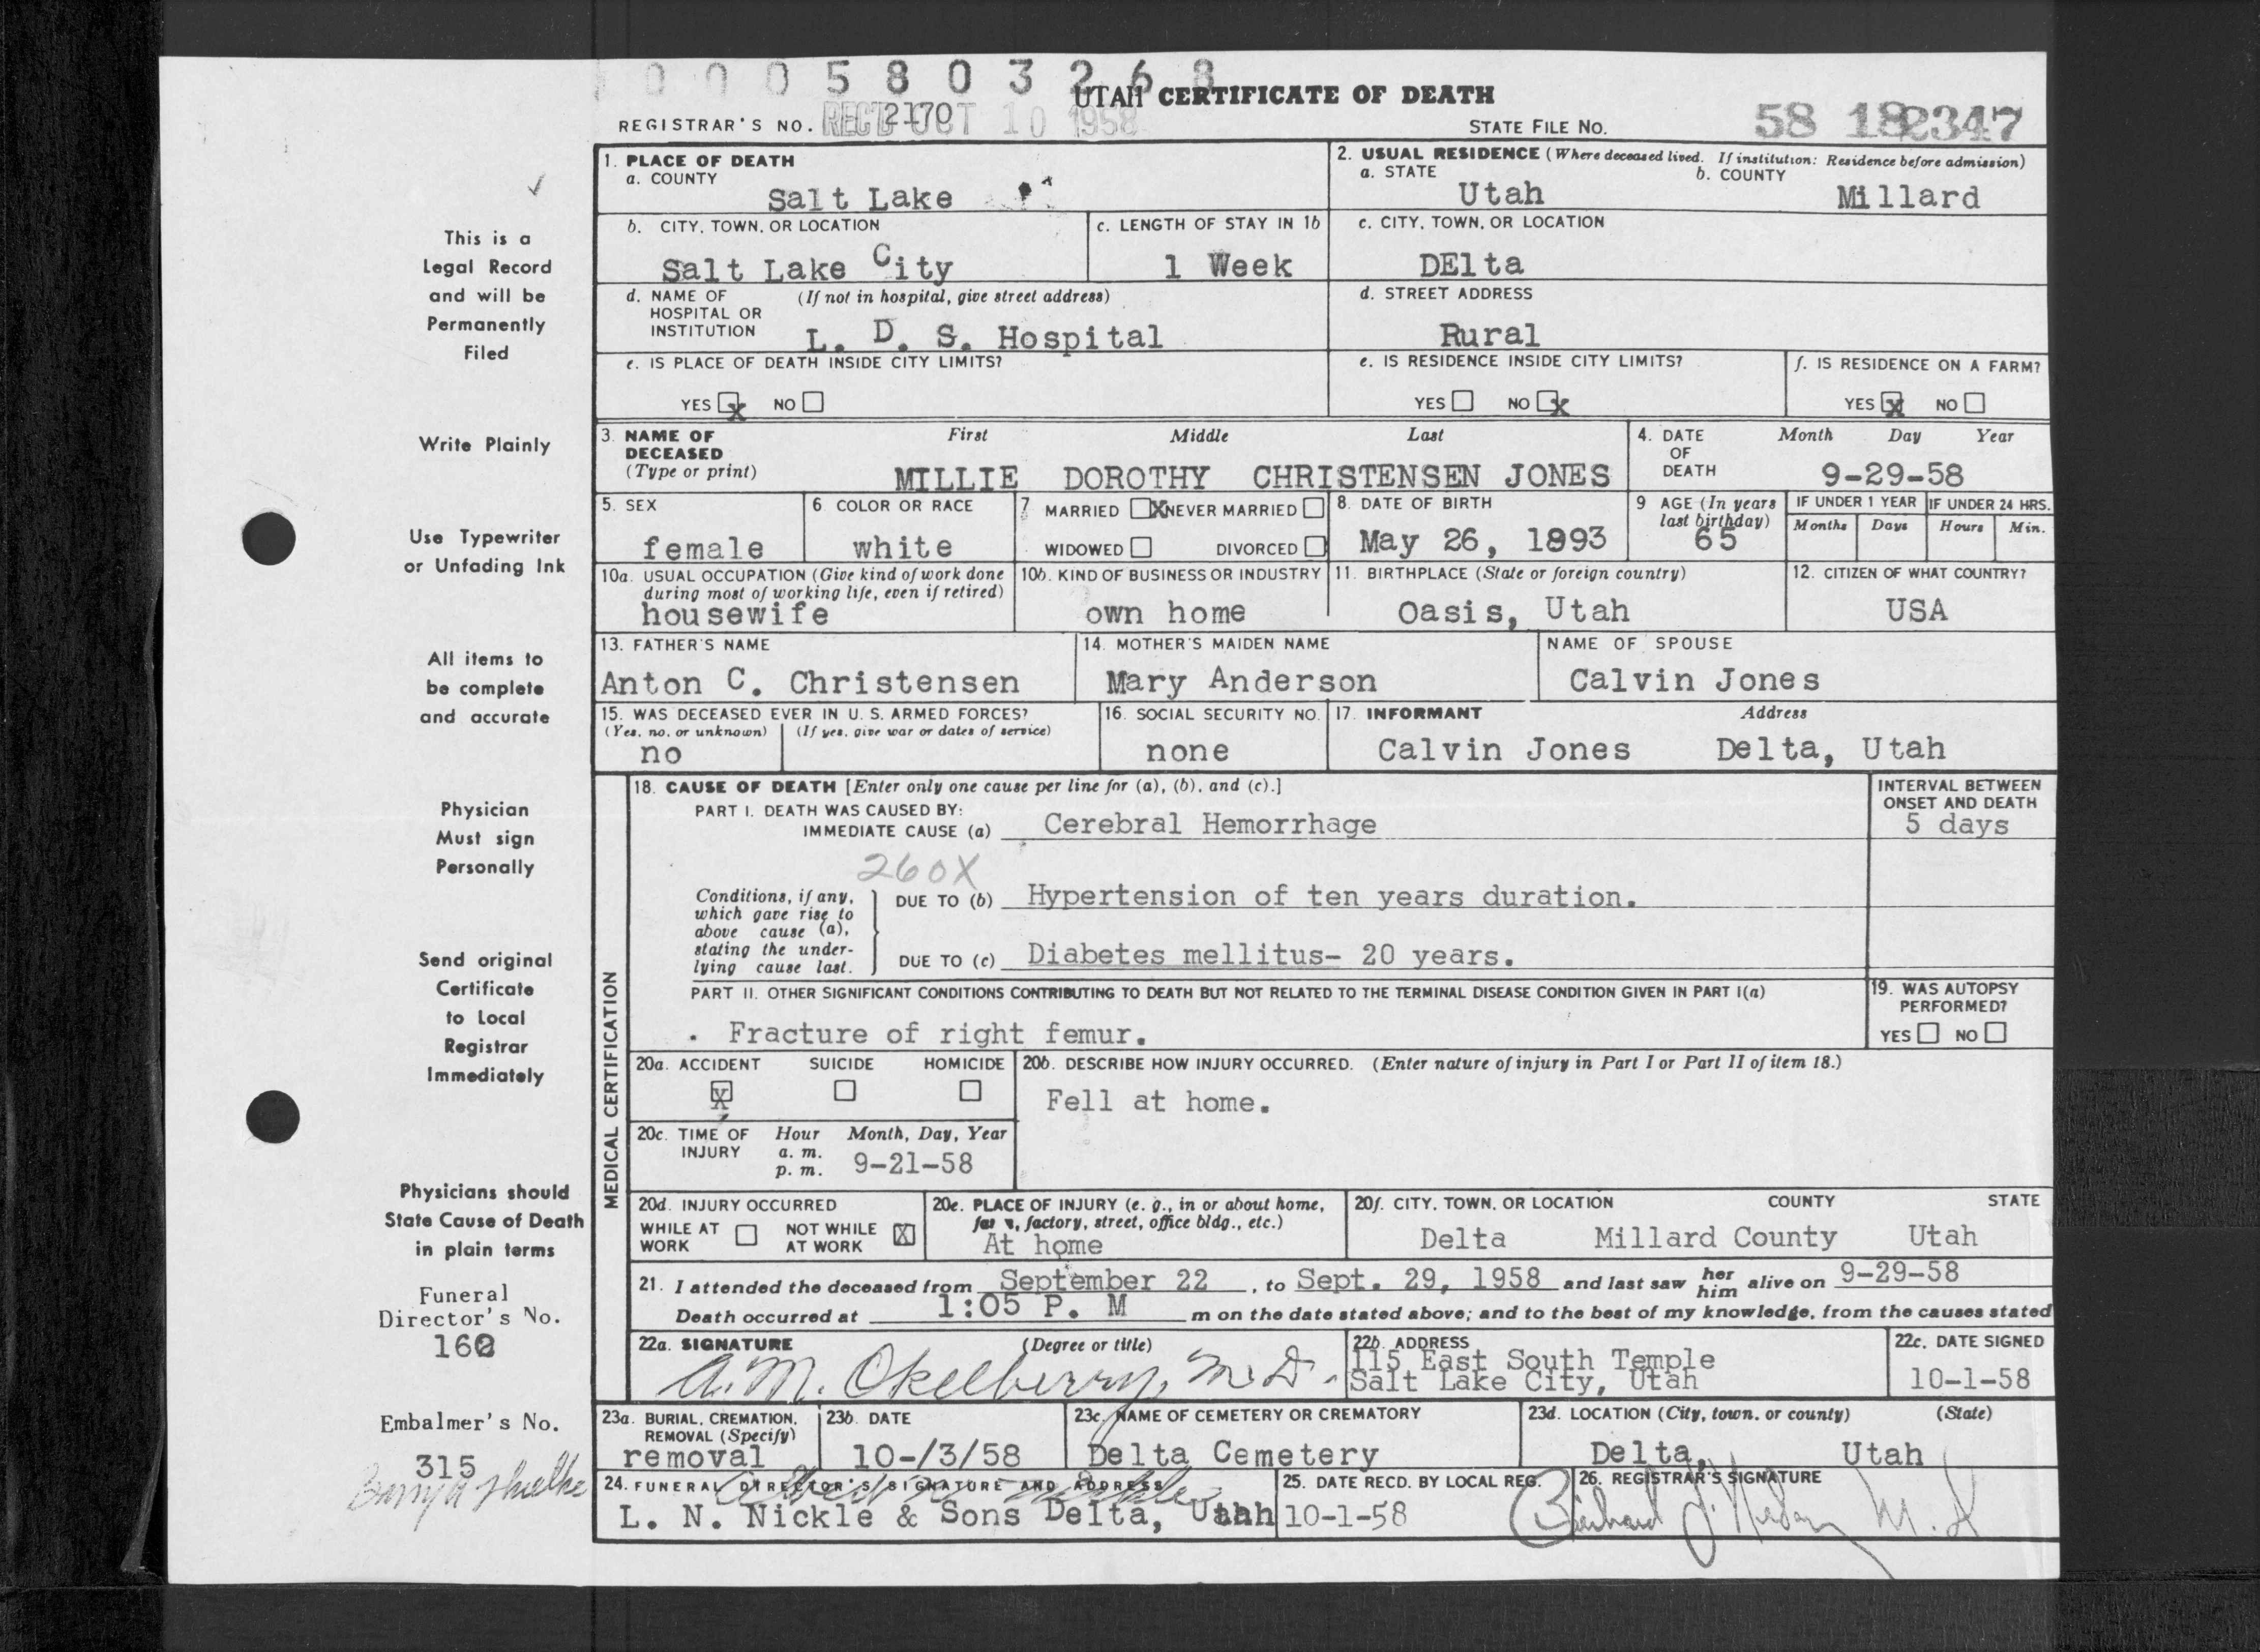 0 0 0 5 8 0 3 2 6 8
UTAH CERTIFICATE OF DEATH
REGISTRAR'S NO. 2170 REC'D OCT 10 1958
STATE FILE NO. 58 18 2347
This is a
Legal Record
and will be
Permanently
Filed
Write Plainly
Use Typewriter
or Unfading Ink
All items to
be complete
and accurate
Physician
Must sign
Personally
Send original
Certificate
to Local
Registrar
Immediately
Physicians should
State Cause of Death
in plain terms
Funeral
Director's No.
160
Embalmer's No.
315
1. PLACE OF DEATH
a. COUNTY
Salt Lake
2. USUAL RESIDENCE (Where deceased lived. If institution: Residence before admission)
a. STATE b. COUNTY
Utah Millard
b. CITY, TOWN, OR LOCATION
Salt Lake City
c. LENGTH OF STAY IN 1b
1 Week
c. CITY, TOWN, OR LOCATION
DElta
d. NAME OF (If not in hospital, give street address)
HOSPITAL OR
INSTITUTION L. D. S. Hospital
d. STREET ADDRESS
Rural
e. IS PLACE OF DEATH INSIDE CITY LIMITS?
YES X NO
e. IS RESIDENCE INSIDE CITY LIMITS?
YES NO X
f. IS RESIDENCE ON A FARM?
YES X NO
3. NAME OF DECEASED (Type or print)
First Middle Last
MILLIE DOROTHY CHRISTENSEN JONES
4. DATE OF DEATH
Month Day Year
9-29-58
5. SEX
female
6. COLOR OR RACE
white
7. MARRIED X NEVER MARRIED
WIDOWED DIVORCED
8. DATE OF BIRTH
May 26, 1893
9. AGE (In years last birthday)
65
IF UNDER 1 YEAR
Months Days
IF UNDER 24 HRS.
Hours Min.
10a. USUAL OCCUPATION (Give kind of work done
during most of working life, even if retired)
housewife
10b. KIND OF BUSINESS OR INDUSTRY
own home
11. BIRTHPLACE (State or foreign country)
Oasis, Utah
12. CITIZEN OF WHAT COUNTRY?
USA
13. FATHER'S NAME
Anton C. Christensen
14. MOTHER'S MAIDEN NAME
Mary Anderson
NAME OF SPOUSE
Calvin Jones
15. WAS DECEASED EVER IN U. S. ARMED FORCES?
(Yes, no, or unknown) (If yes, give war or dates of service)
no
16. SOCIAL SECURITY NO.
none
17. INFORMANT Address
Calvin Jones Delta, Utah
MEDICAL CERTIFICATION
18. CAUSE OF DEATH [Enter only one cause per line for (a), (b), and (c).]
PART I. DEATH WAS CAUSED BY:
IMMEDIATE CAUSE (a) Cerebral Hemorrhage
INTERVAL BETWEEN
ONSET AND DEATH
5 days
260X
Conditions, if any,
which gave rise to
above cause (a),
stating the under-
lying cause last.
DUE TO (b) Hypertension of ten years duration.
DUE TO (c) Diabetes mellitus- 20 years.
PART II. OTHER SIGNIFICANT CONDITIONS CONTRIBUTING TO DEATH BUT NOT RELATED TO THE TERMINAL DISEASE CONDITION GIVEN IN PART I(a)
. Fracture of right femur.
19. WAS AUTOPSY
PERFORMED?
YES NO
20a. ACCIDENT SUICIDE HOMICIDE
X
20b. DESCRIBE HOW INJURY OCCURRED. (Enter nature of injury in Part I or Part II of item 18.)
Fell at home.
20c. TIME OF INJURY
Hour Month, Day, Year
a. m.
p. m. 9-21-58
20d. INJURY OCCURRED
WHILE AT WORK NOT WHILE AT WORK X
20e. PLACE OF INJURY (e. g., in or about home,
farm, factory, street, office bldg., etc.)
At home
20f. CITY, TOWN, OR LOCATION COUNTY STATE
Delta Millard County Utah
21. I attended the deceased from September 22, to Sept. 29, 1958 and last saw her him alive on 9-29-58
Death occurred at 1:05 P. M m on the date stated above; and to the best of my knowledge, from the causes stated
22a. SIGNATURE (Degree or title)
A. M. Okelberry, M. D.
22b. ADDRESS
115 East South Temple
Salt Lake City, Utah
22c. DATE SIGNED
10-1-58
23a. BURIAL, CREMATION,
REMOVAL (Specify)
removal
23b. DATE
10-/3/58
23c. NAME OF CEMETERY OR CREMATORY
Delta Cemetery
23d. LOCATION (City, town, or county) (State)
Delta, Utah
24. FUNERAL DIRECTOR'S SIGNATURE AND ADDRESS
L. N. Nickle & Sons Delta, Utah
25. DATE RECD. BY LOCAL REG.
10-1-58
26. REGISTRAR'S SIGNATURE